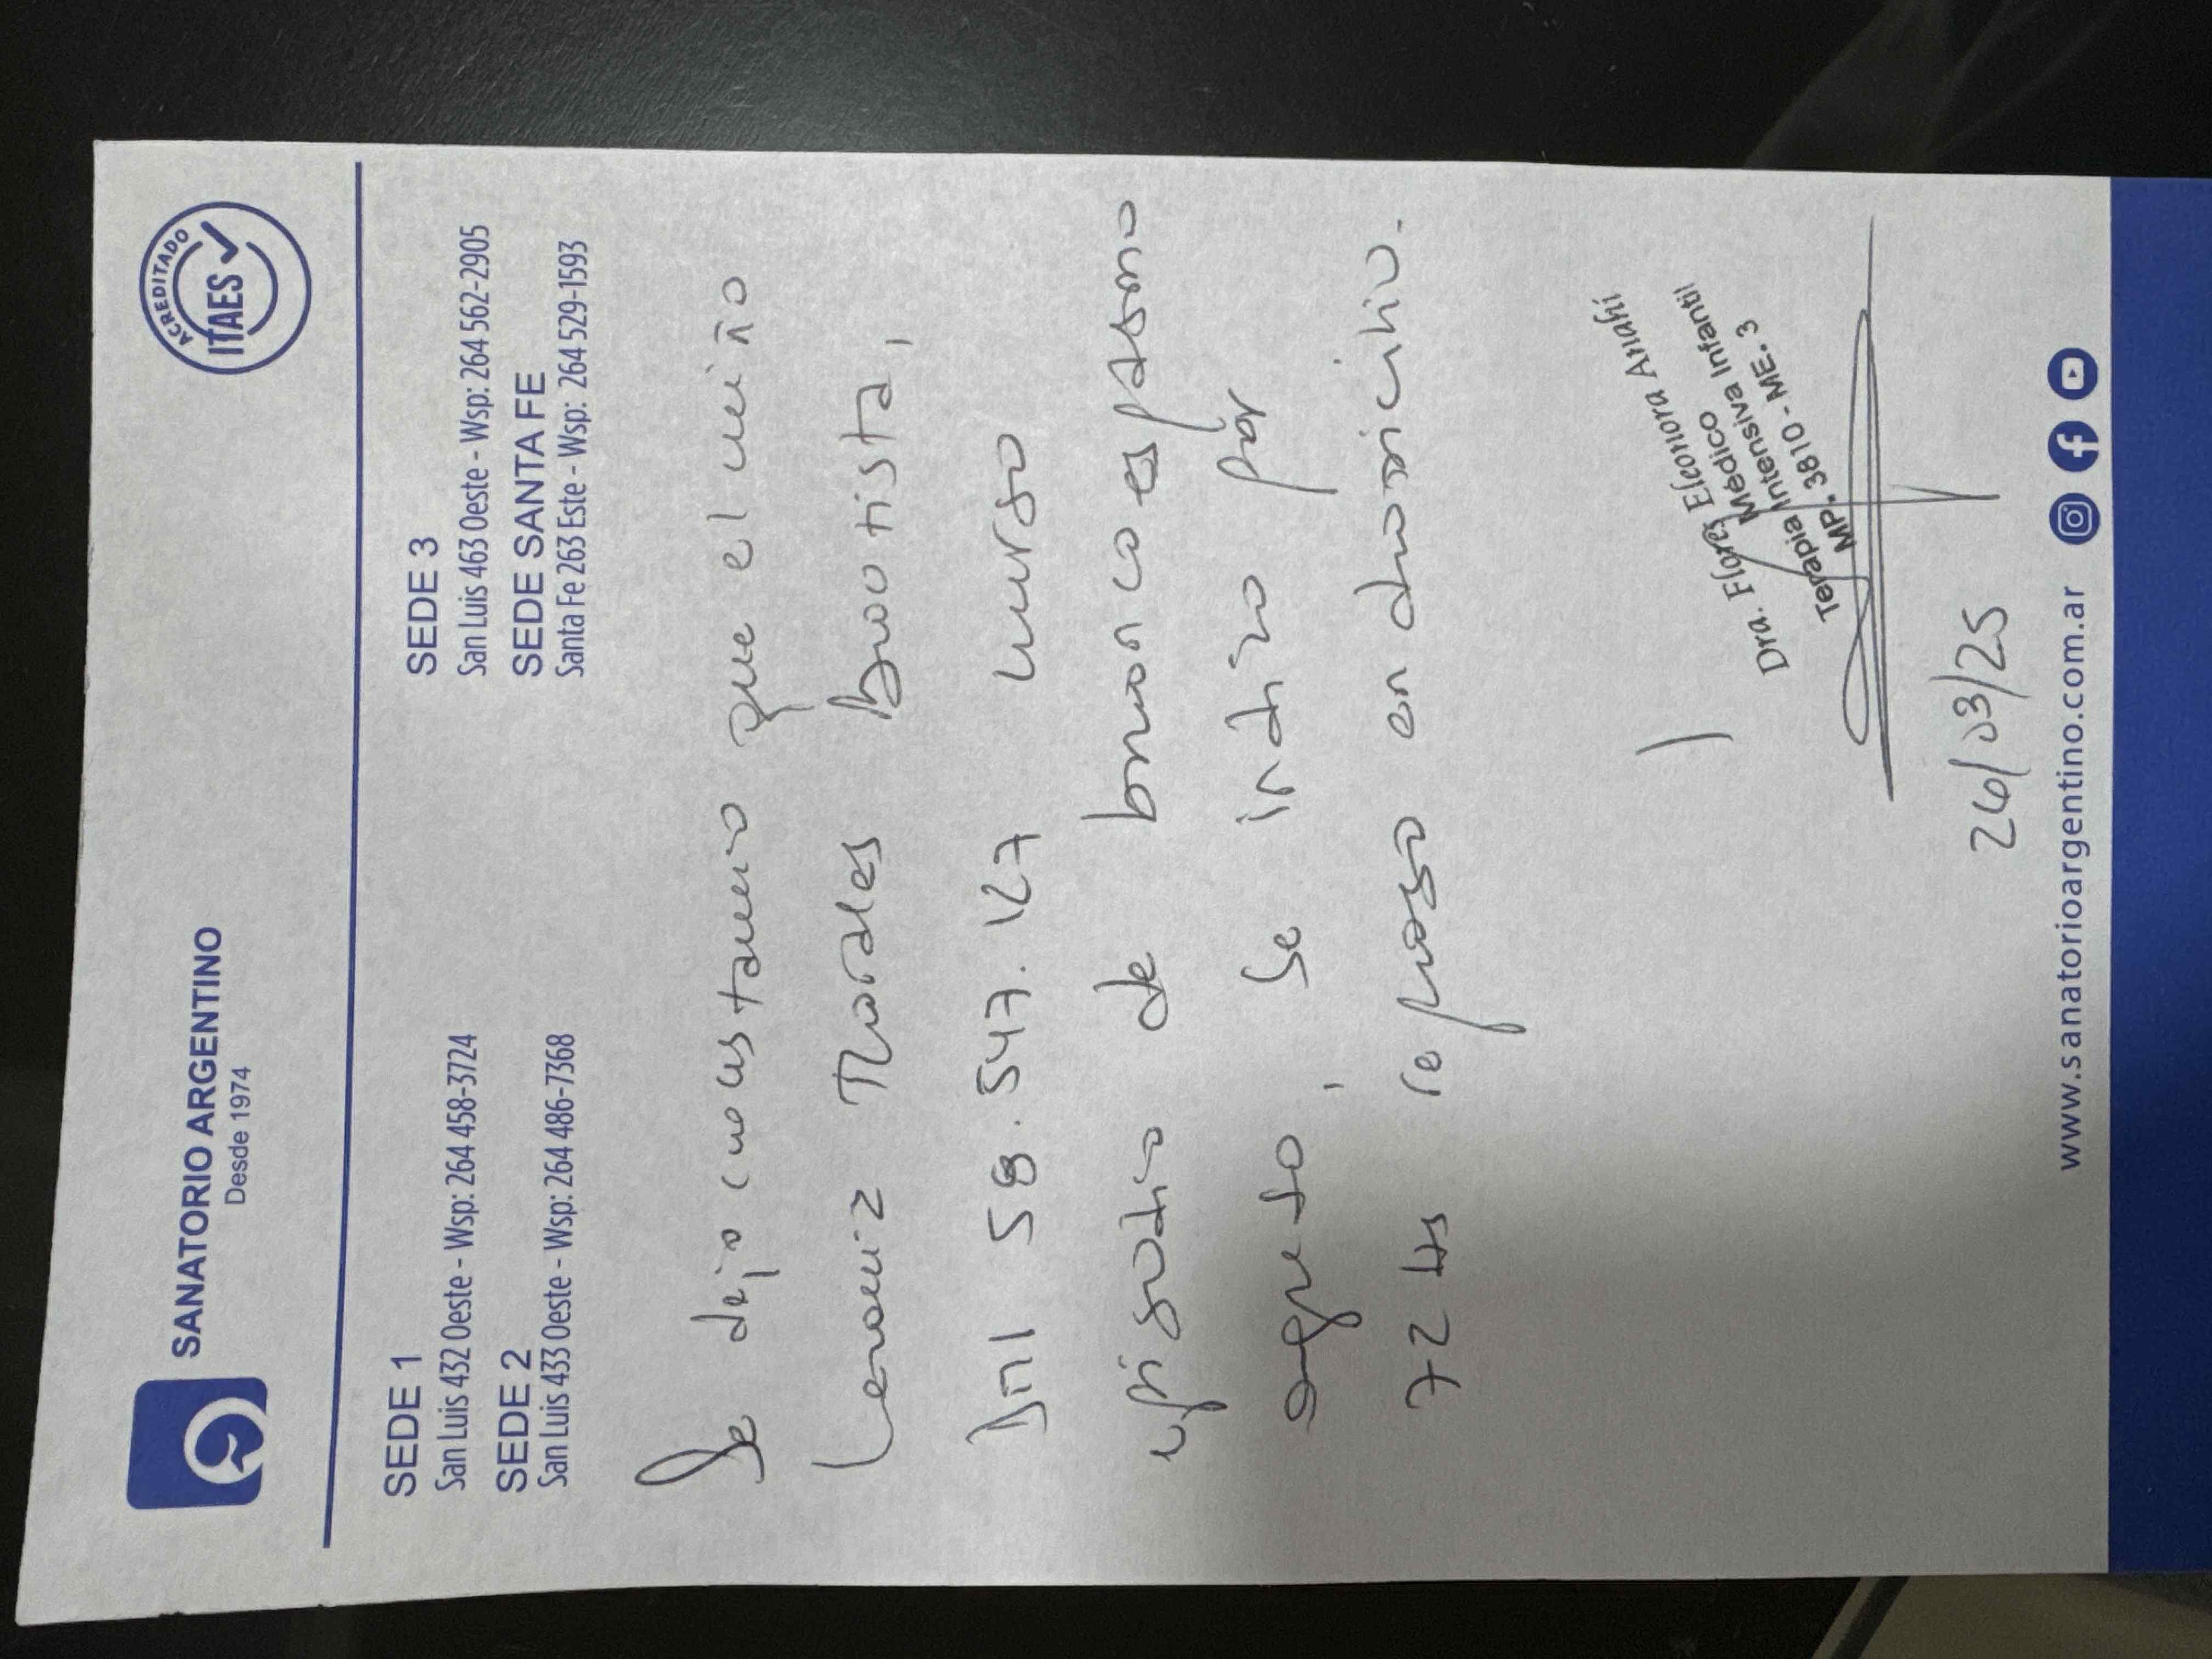 SANATORIO ARGENTINO
Desde 1974
ACREDITADO
ITAES
SEDE 1
San Luis 432 Oeste - Wsp: 264 458-3724
SEDE 2
San Luis 433 Oeste - Wsp: 264 486-7368
SEDE 3
San Luis 463 Oeste - Wsp: 264 562-2905
SEDE SANTA FE
Santa Fe 263 Este - Wsp: 264 529-1593
Se dejo constancia que el niño
Morales Bautista,
DNI 58.547.127 curso
episodio de broncoespasmo
agudo, se indico por
72 Hs reposo en domicilio.
Dra. Flores Eleonora Anahi
Médico
Terapia Intensiva Infantil
MP. 3810 - ME. 3
26/03/25
www.sanatorioargentino.com.ar